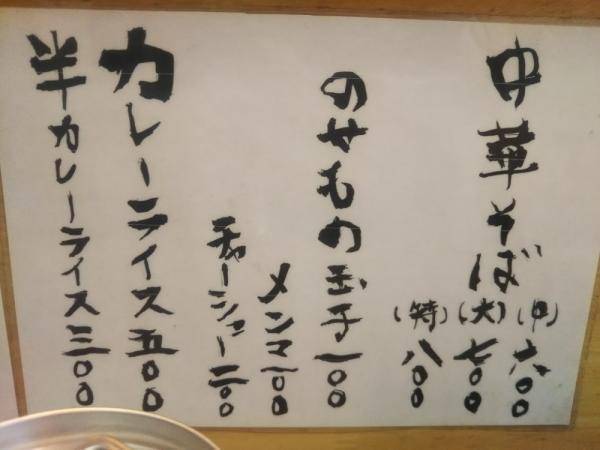 中華そば
(中)六〇〇
(大)七〇〇
(特)八〇〇
のせもの
玉子一〇〇
メンマ一〇〇
チャーシュー二〇〇
カレーライス五〇〇
半カレーライス三〇〇